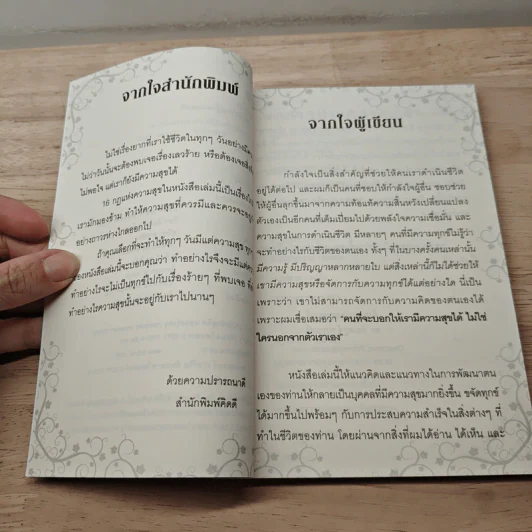 จากใจสำนักพิมพ์
ไม่ใช่เรื่องยากที่เราใช้ชีวิตในทุกๆ วันอย่างมี
ไม่ว่าวันนั้นจะต้องพบเจอเรื่องเลวร้าย หรือต้องเจอสิ่ง
ไม่พอใจ แต่เราก็ยังมีความสุขได้
16 กฎแห่งความสุขในหนังสือเล่มนี้เป็นเรื่อง
เรามักมองข้าม ทำให้ความสุขที่ควรมีและควรจะอยู่
อย่างถาวรห่างไกลออกไป
ถ้าคุณเลือกที่จะทำให้ทุกๆ วันมีแต่ความสุข ทุกๆ
ของหนังสือเล่มนี้จะบอกคุณว่า ทำอย่างไรจึงจะมีแต่
ทำอย่างไรจะไม่เป็นทุกข์ไปกับเรื่องร้ายๆ ที่พบเจอ
ทำอย่างไรความสุขนั้นจะอยู่กับเราไปนานๆ
ด้วยความปรารถนาดี
สำนักพิมพ์คิดดี
จากใจผู้เขียน
กำลังใจเป็นสิ่งสำคัญที่ช่วยให้คนเราดำเนินชีวิต
อยู่ได้ต่อไป และผมก็เป็นคนที่ชอบให้กำลังใจผู้อื่น ชอบช่วย
ให้ผู้อื่นลุกขึ้นมาจากความท้อแท้ความสิ้นหวังเปลี่ยนแปลง
ตัวเองเป็นอีกคนที่เต็มเปี่ยมไปด้วยพลังใจความเชื่อมั่น และ
ความสุขในการดำเนินชีวิต มีหลายๆ คนที่มีความทุกข์ไม่รู้ว่า
จะทำอย่างไรกับชีวิตของตนเอง ทั้งๆ ที่ในบางครั้งคนเหล่านั้น
มีความรู้ มีปริญญาหลากหลายใบ แต่สิ่งเหล่านี้ก็ไม่ได้ช่วยให้
เขามีความสุขหรือจัดการกับความทุกข์ได้แต่อย่างใด นี่เป็น
เพราะว่า เขาไม่สามารถจัดการกับความคิดของตนเองได้
เพราะผมเชื่อเสมอว่า "คนที่จะบอกให้เรามีความสุขได้ ไม่ใช่
ใครนอกจากตัวเราเอง"
หนังสือเล่มนี้ให้แนวคิดและแนวทางในการพัฒนาตน
เองของท่านให้กลายเป็นบุคคลที่มีความสุขมากยิ่งขึ้น ขจัดทุกข์
ได้มากขึ้นไปพร้อมๆ กับการประสบความสำเร็จในสิ่งต่างๆ ที่
ทำในชีวิตของท่าน โดยผ่านจากสิ่งที่ผมได้อ่าน ได้เห็น และ